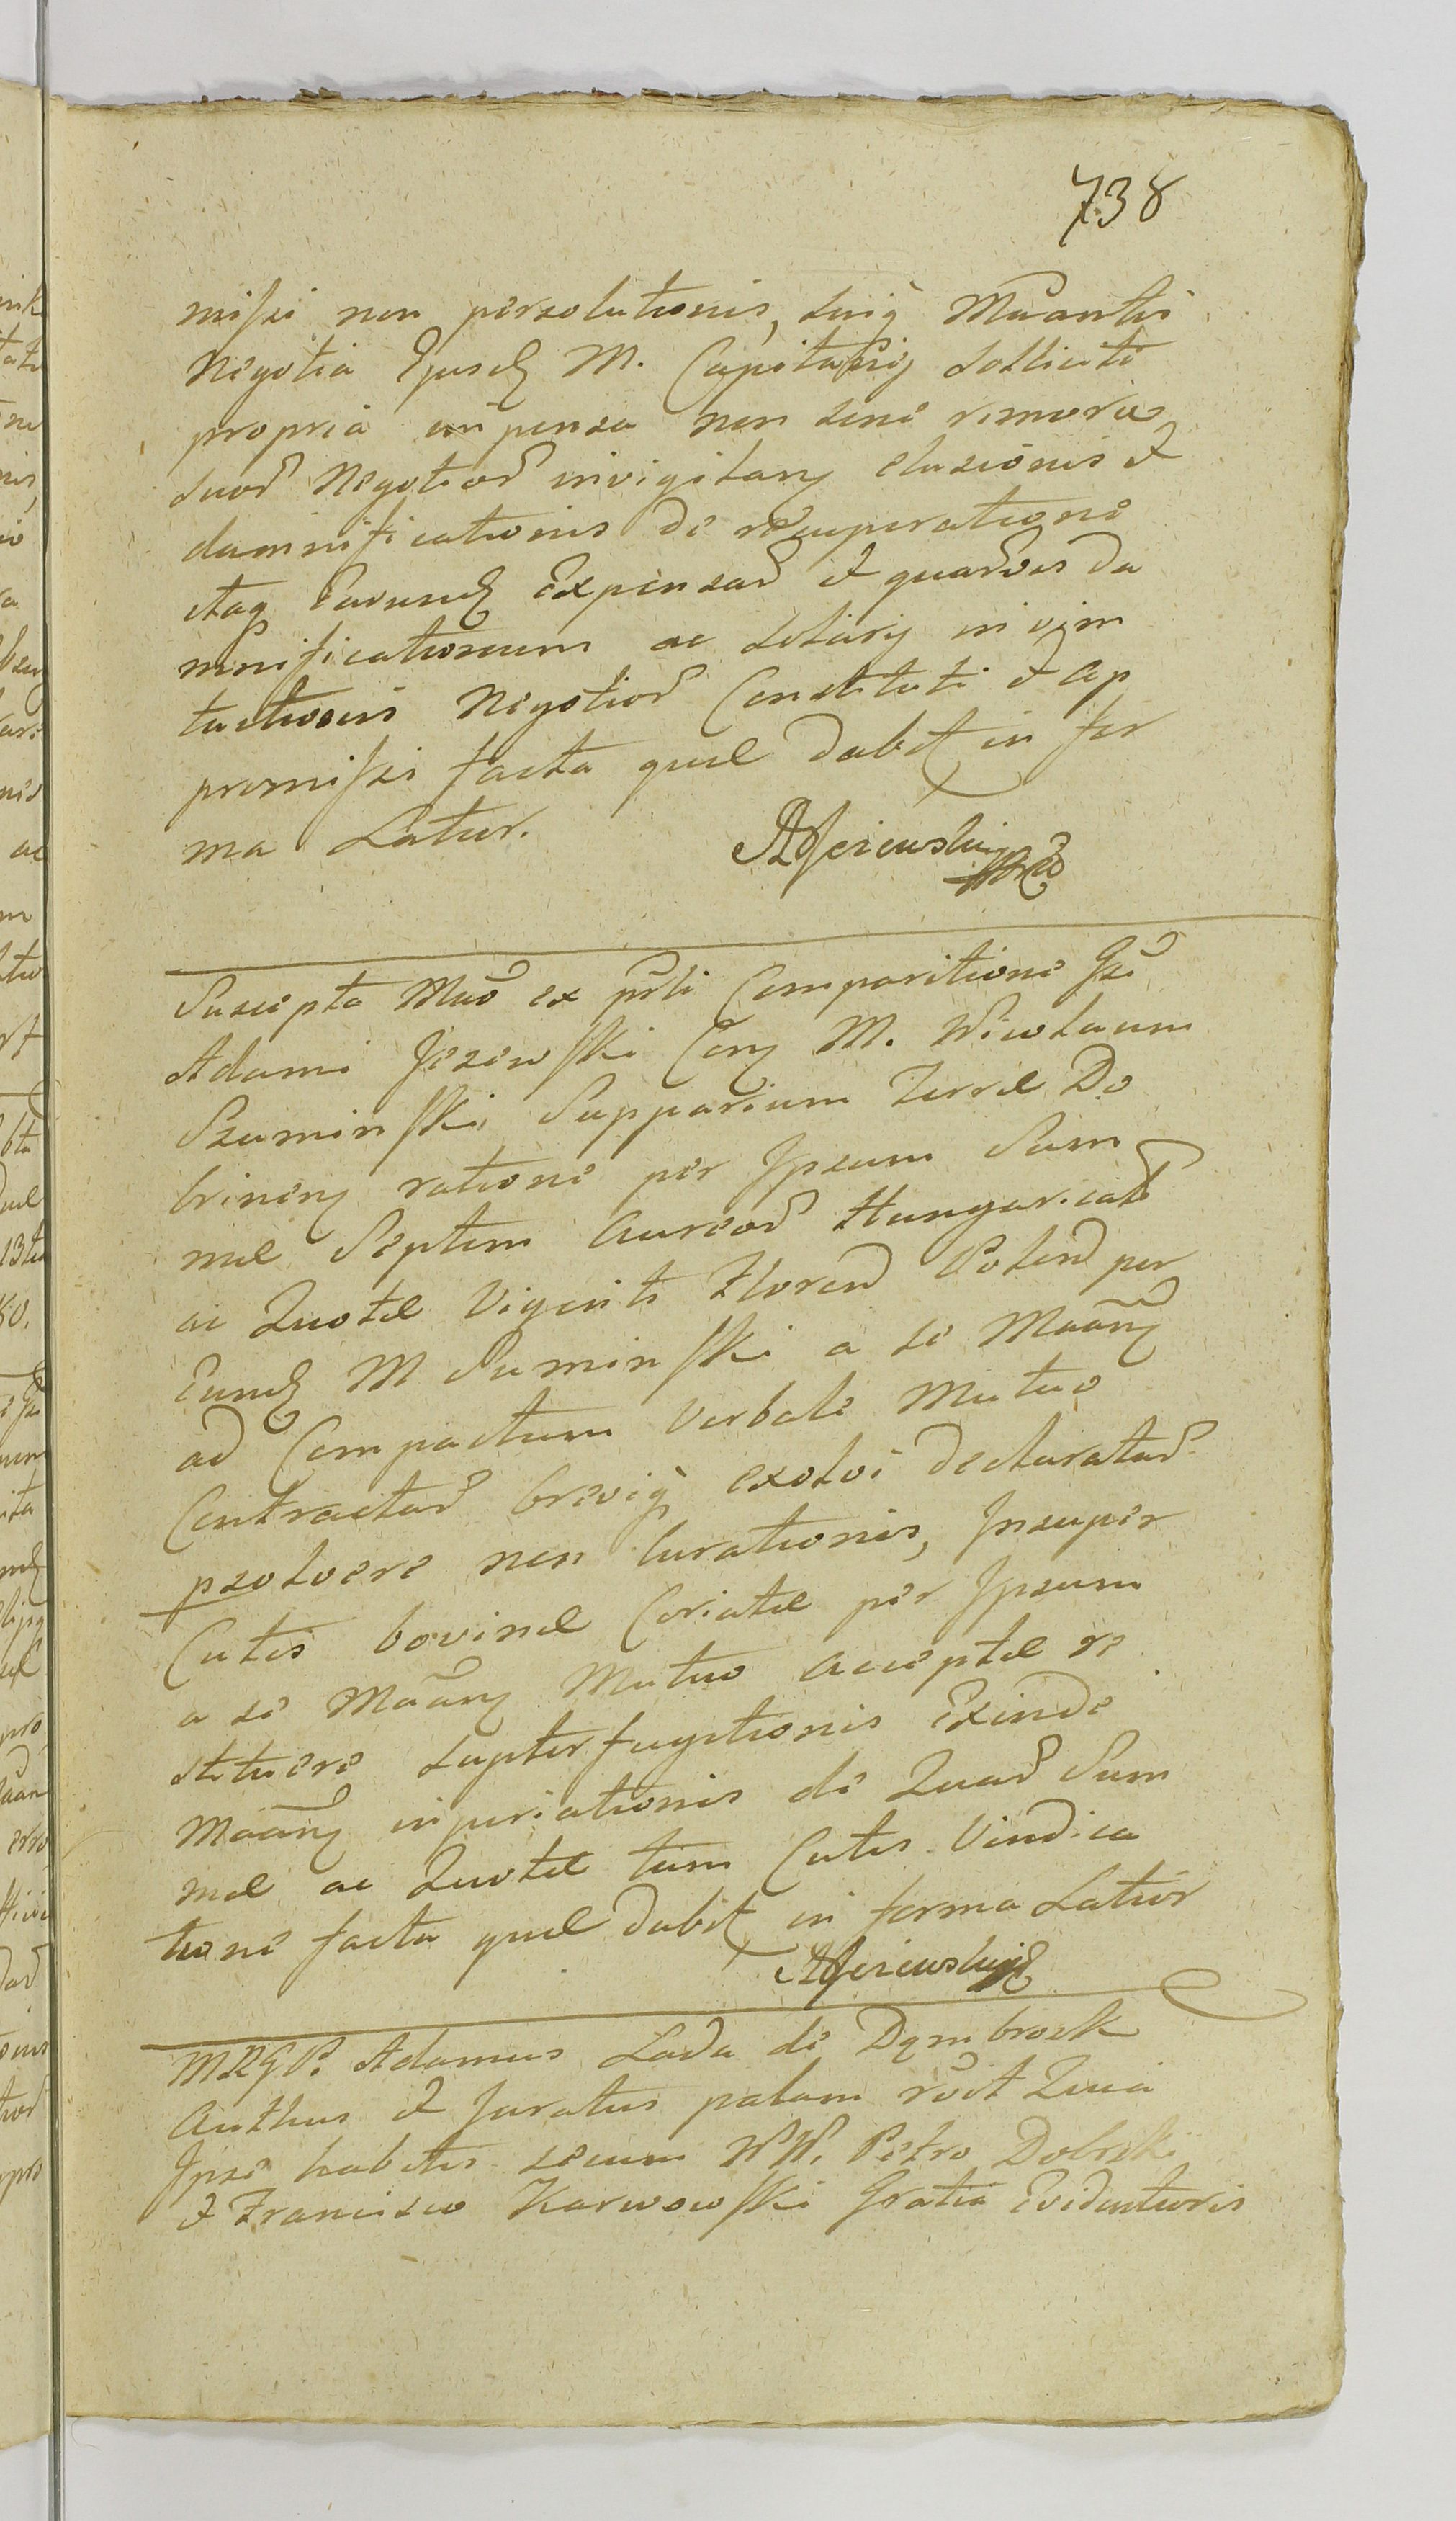 738
missi non persolutionis, suisq Mñantis
Negotia Ejusd M. Capitanij solliciti
propria impensa non sine remoris
suor Negotior invigilan elusionis et
damnificationis de recuperatione
itaq earund Expensar et quarvis da
mnificationum ac solarij in vim
Negotior Constituti et ap
promissi facta quæ dabit in for
ma Latior.
AJezewski
Suscepta Mñõ ex pñti Comparitione Gsi
Adami Jezewski Con M. Nicolaum
Szuminski Supparium Terræ Do
brinen ratione per Ipsum Sum
mæ Septem Aureor Hungarical
ac Quotæ Viginti Floren Polon per
Eund M Suminski a se Mñan
ad Compactum Verbale Mutuo
Contractar breviq exolvi declaratar
psolvere non curationis, Insuper
Cutis bovinæ Coriatæ per Ipsum
a se Mñan Mutuo acceptæ re
stituere supterfugitionis Exinde
Mñan injuriationis de Quar Sum
mæ ac Quotæ tum Cutis Vindica
tione facta quæ dabit in forma Latior
AJezewski
MRGP. Adamus Lada de Dąmbrosk
Authus et Juratus palam rõit Quia
Ipse habitis secum NN. Petro Dobrski
et Francisco Karwowski Gratia Evidentioris